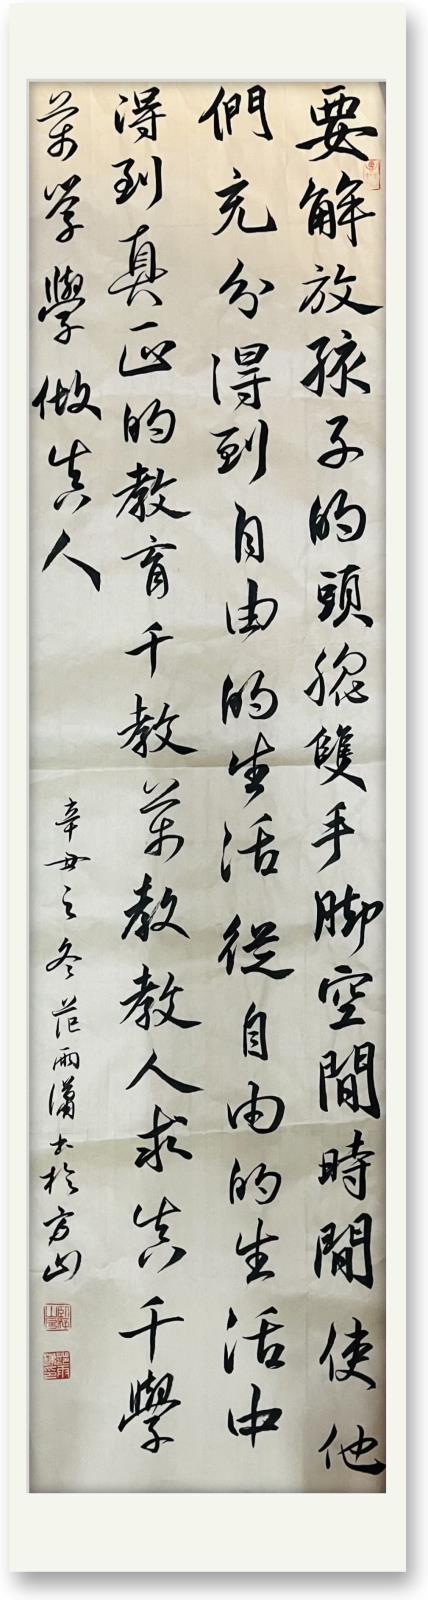 要解放孩子的頭腦雙手脚空間時間使他
們充分得到自由的生活從自由的生活中
得到真正的教育千教萬教教人求真千學
萬学學做真人
辛丑之冬范雨瀟书於方山